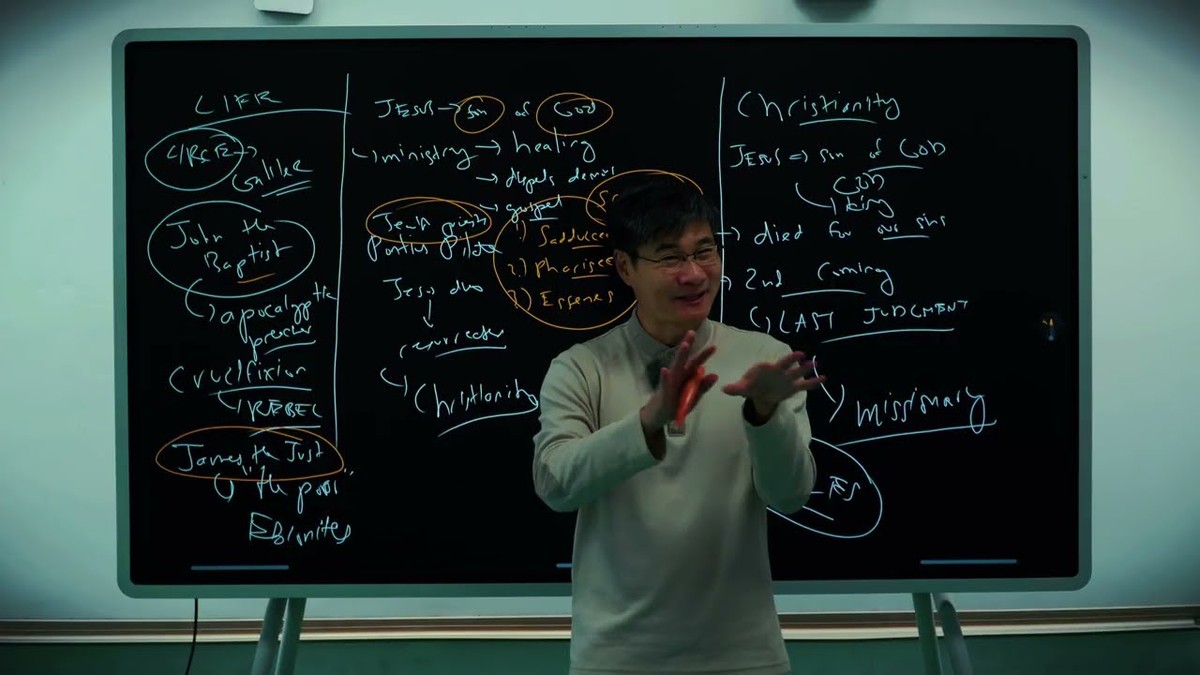 LIFE
Galilee
John the
Baptist
apocalyptic
preacher
Crucifixion
REBEL
James the Just
"the poor"
Ebionites
JESUS → son of GOD
ministry → healing
→ dispels demons
→ gospel
Jewish priests
Pontius Pilate
1) Sadducee
2) Pharisee
3) Essenes
Jesus dies
resurrection
Christianity
Christianity
JESUS → son of GOD
GOD
king
→ died for our sins
→ 2nd Coming
LAST JUDGMENT
missionary